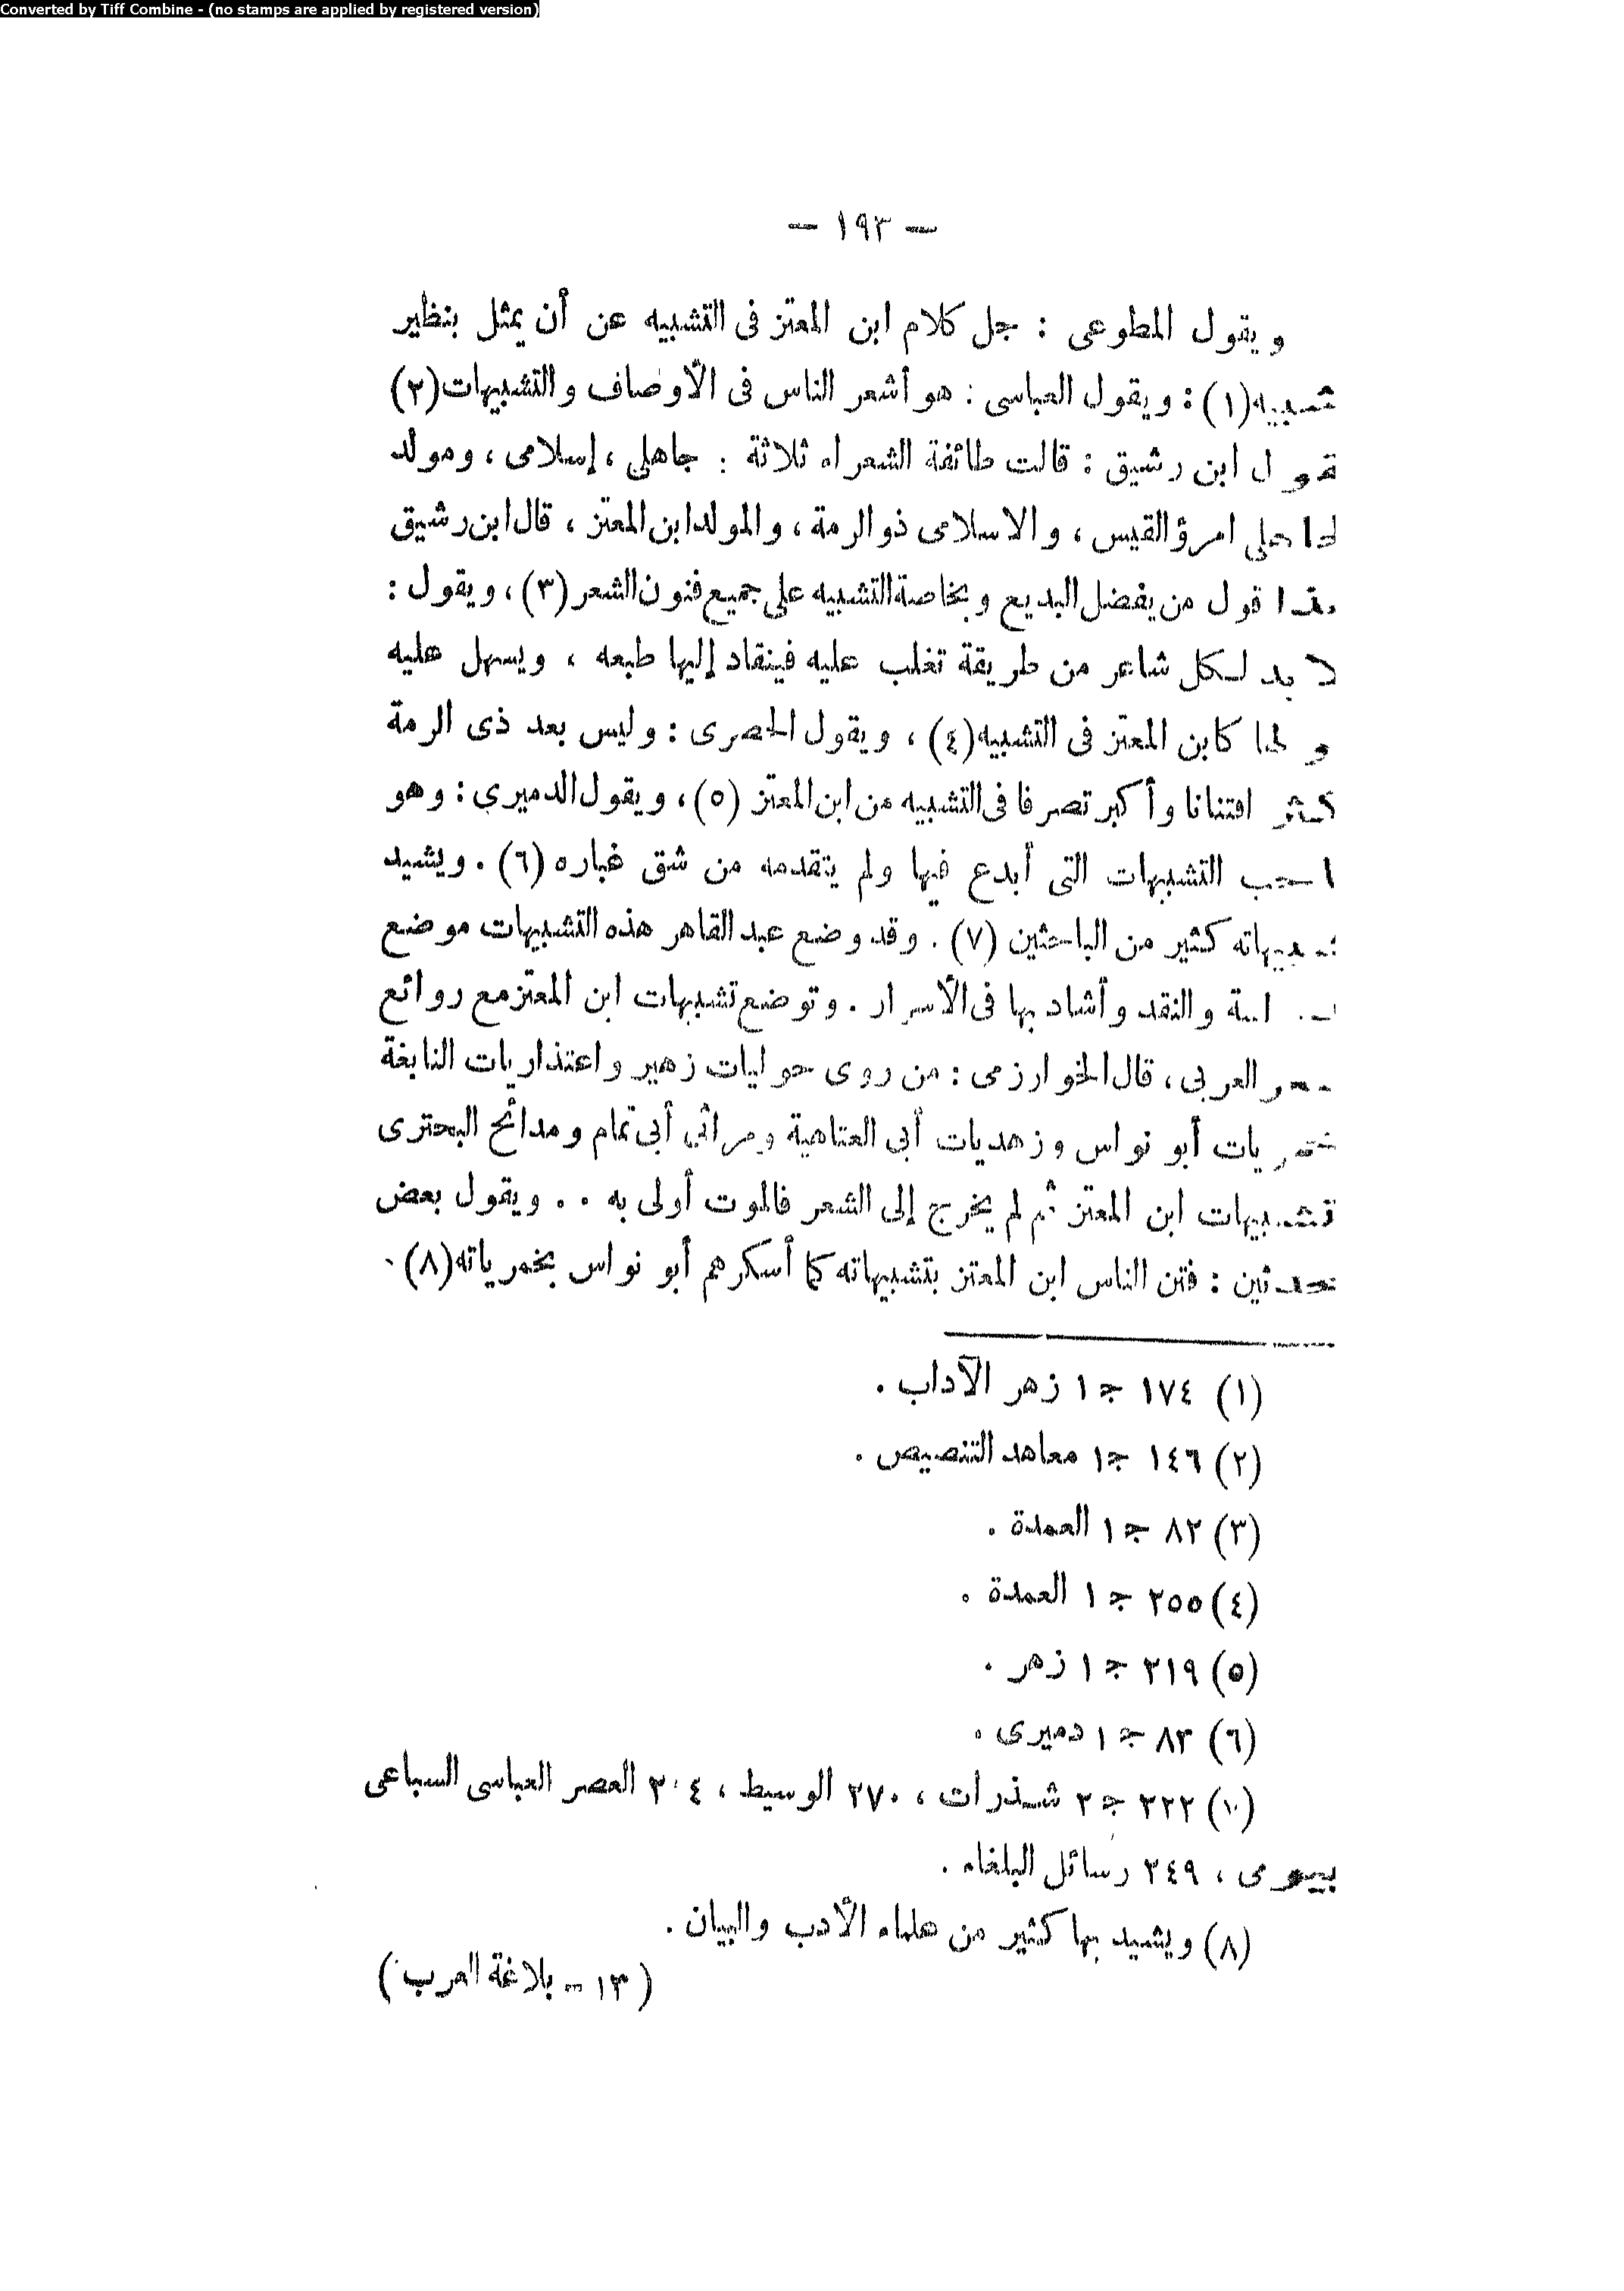 Converted by Tiff Combine - (no stamps are applied by registered version)
— ١٩٣ —
ويقول المطوعى : جل كلام ابن المعتز فى التشبيه عن أن يمثل بنظير
شبيه(١) : ويقول العباسى : هو أشعر الناس فى الأوصاف والتشبيهات(٢)
ابن رشيق : قالت طائفة الشعراء ثلاثة : جاهلى ، إسلامى ، ومولد
امرؤ القيس ، والاسلامى ذو الرمة ، والمولد ابن المعتز ، قال ابن رشيق
قول من يفضل البديع وبخاصة التشبيه على جميع فنون الشعر (٣) ، ويقول :
لا بد لكل شاعر من طريقة تغلب عليه فينقاد إليها طبعه ، ويسهل عليه
كابن المعتز فى التشبيه(٤) ، ويقول الحصرى : وليس بعد ذى الرمة
كثر افتنانا وأكبر تصرفا فى التشبيه من ابن المعتز (٥) ، ويقول الدميرى : وهو
احب التشبيهات التى أبدع فيها ولم يتقدمه من شق غباره (٦) . ويشيد
كثير من الباحثين (٧) . وقد وضع عبد القاهر هذه التشبيهات موضع
والنقد وأشاد بها فى الأسرار . وتوضع تشبيهات ابن المعتز مع روائع
العربى ، قال الخوارزمى : من روى حوليات زهير واعتذاريات النابغة
خمريات أبو نواس وزهديات أبى العتاهية ومراثى أبى تمام ومدائح البحترى
تشبيهات ابن المعتز ثم لم يخرج إلى الشعر فالموت أولى به . . ويقول بعض
حدثين : فتن الناس ابن المعتز بتشبيهاته كما أسكرهم أبو نواس بخمرياته(٨) .
(١) ١٧٤ ج ١ زهر الآداب .
(٢) ١٤٦ ج ١ معاهد التنصيص .
(٣) ٨٢ ج ١ العمدة .
(٤) ٢٥٥ ج ١ العمدة .
(٥) ٢١٩ ج ١ زهر .
(٦) ٨٣ ج ١ دميرى .
٢٢٢ ج ٢ شذرات ، ٢٧٠ الوسيط ، ٣٠٤ العصر العباسى السباعى
بيومى ، ٢٤٩ رسائل البلغاء .
(٨) ويشيد بها كثير من علماء الأدب والبيان .
( ١٣ — بلاغة العرب )